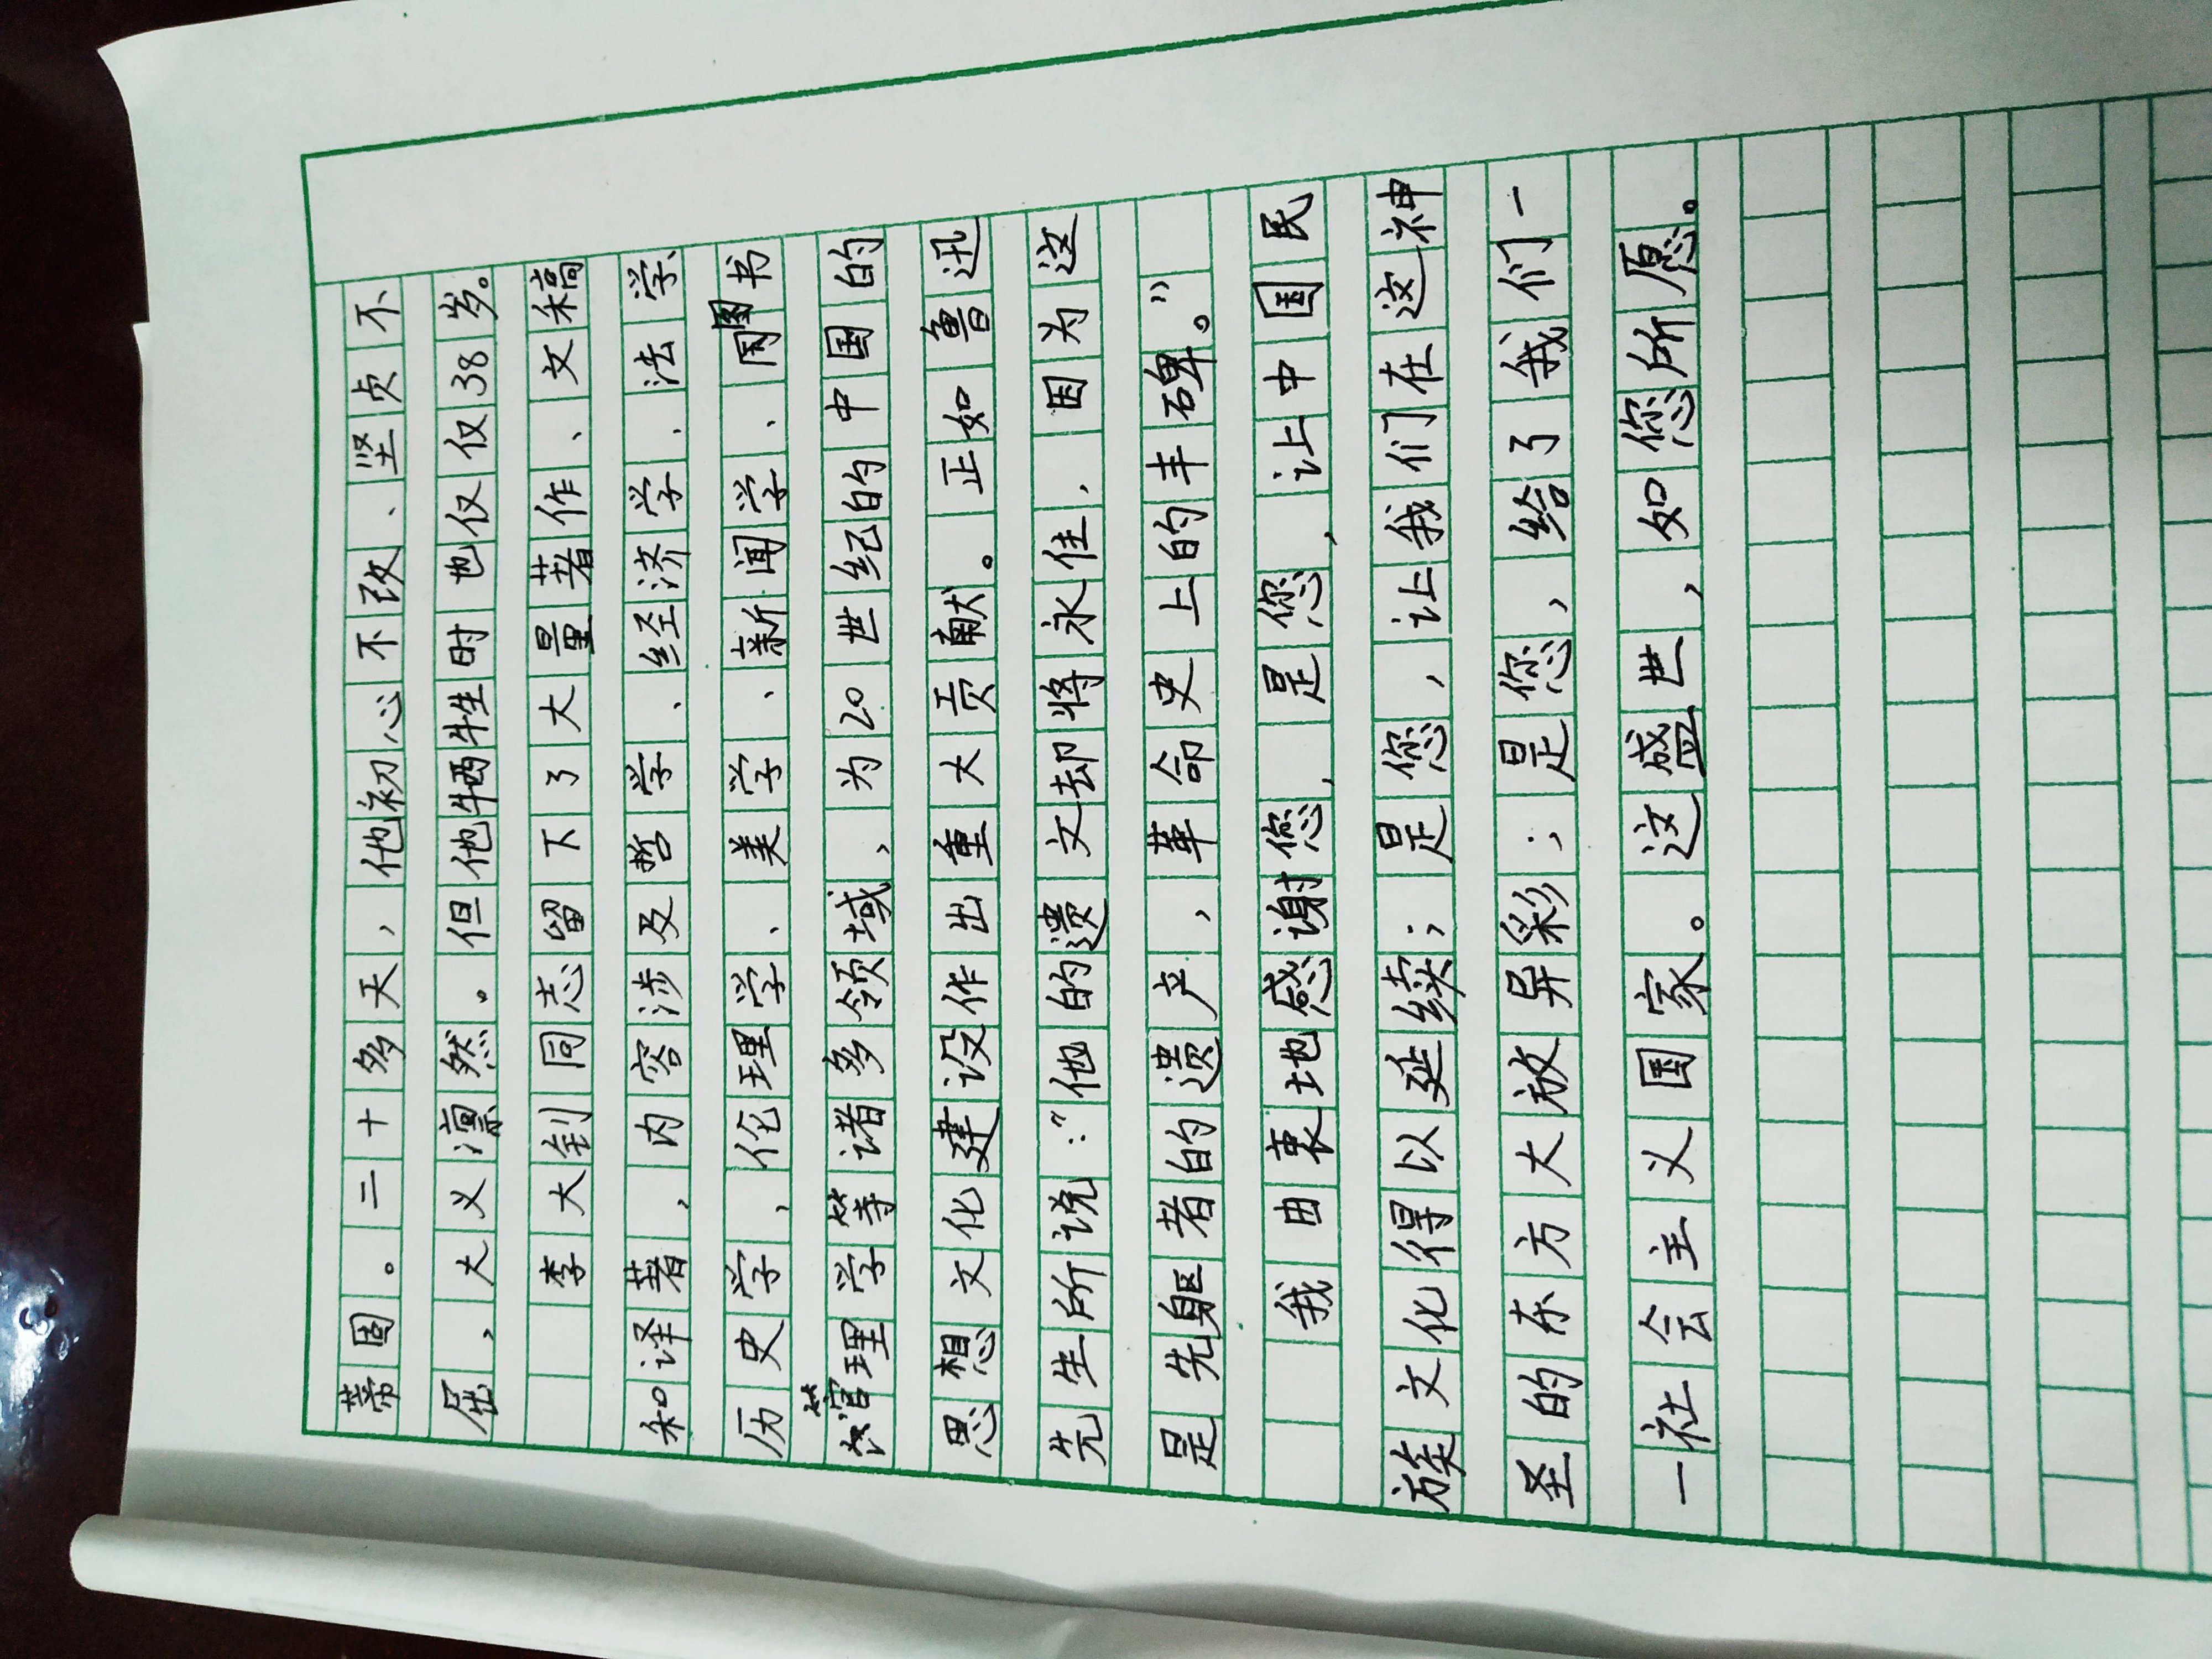 蒂固。二十多天，他初心不改、坚贞不
屈，大义凛然。但他牺牲时也仅仅38岁。
李大钊同志留下了大量著作、文稿
和译著，内容涉及哲学、经济学、法学、
历史学，伦理学、美学、新闻学、图书
管理学等诸多领域，为20世纪的中国的
思想文化建设作出重大贡献。正如鲁迅
先生所说：“他的遗文却将永住，因为这
是先躯者的遗产，革命史上的丰碑。”
我由衷地感谢您，是您，让中国民
族文化得以延续；是您，让我们在这神
圣的东方大放异彩；是您，给了我们一
一社会主义国家。这盛世，如您所愿。